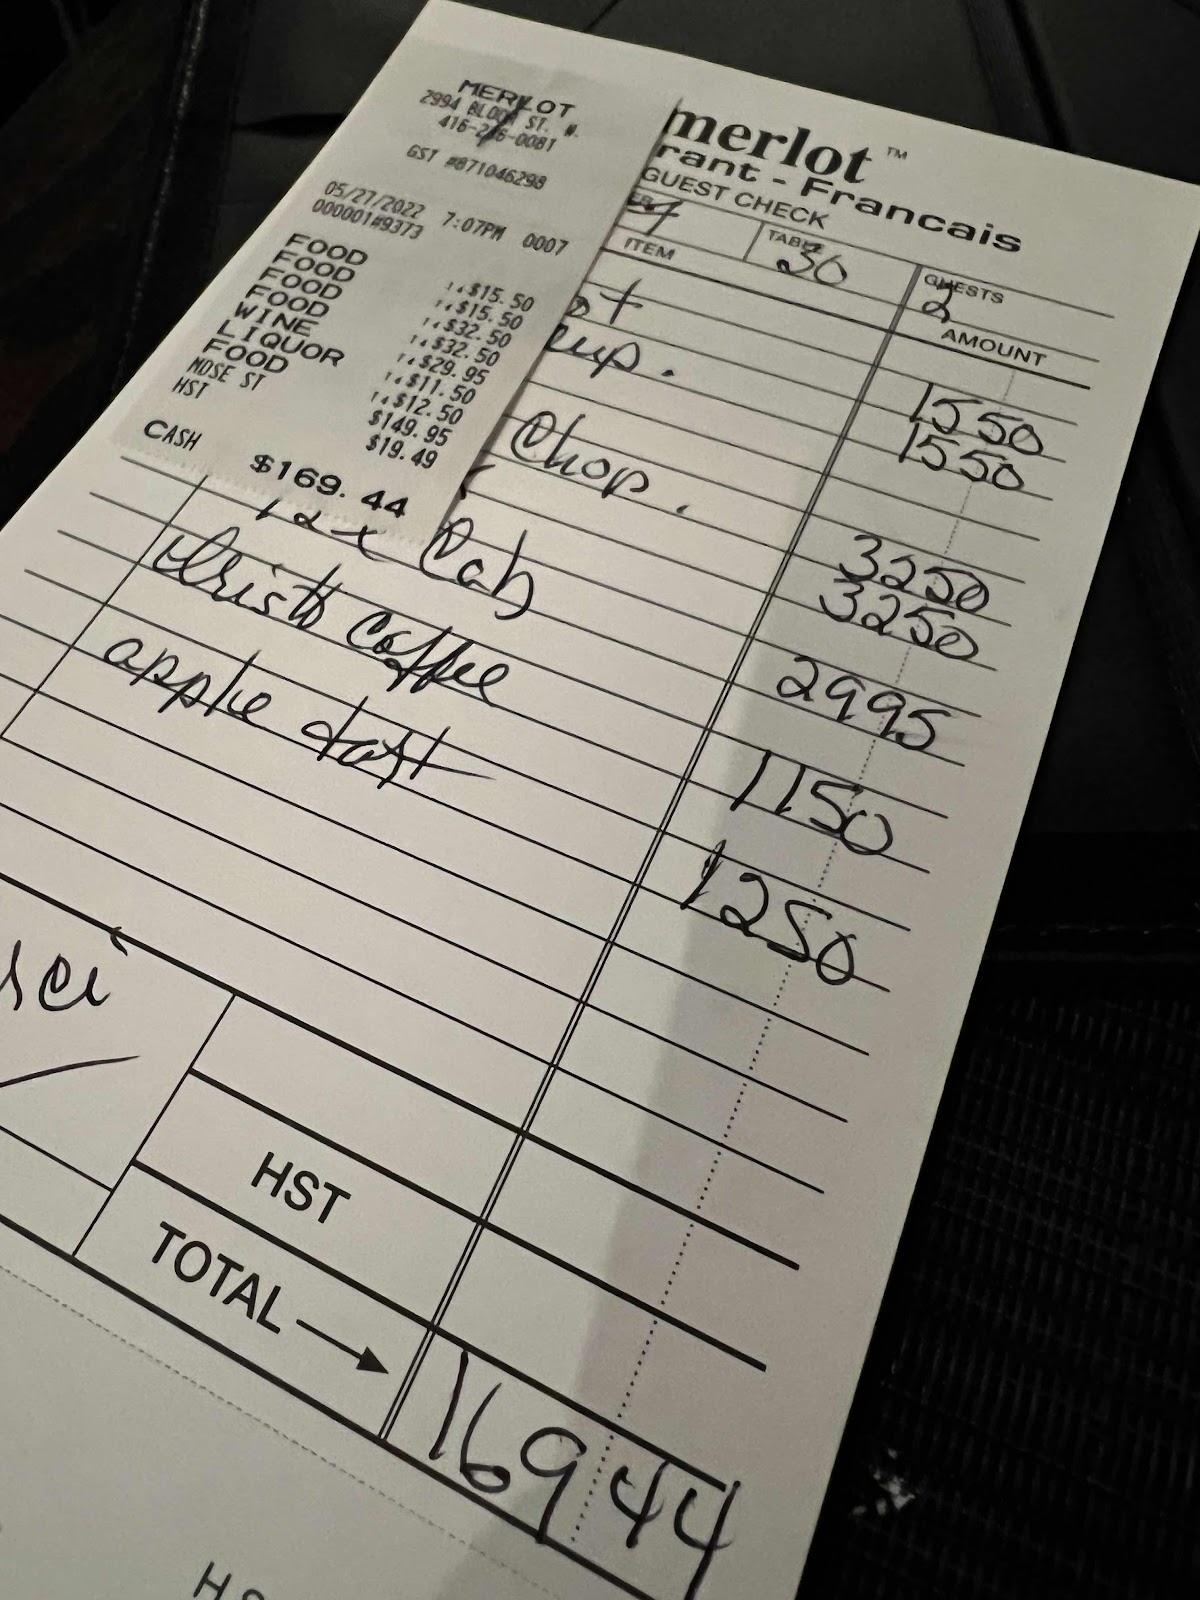 MERLOT
2994 BLOOR ST. W.
GST #871046298
05/27/2022 7:07PM 0007
000001#9373
FOOD $15.50
FOOD $15.50
FOOD $32.50
FOOD $32.50
WINE $29.95
LIQUOR $11.50
FOOD $12.50
MDSE ST $149.95
HST $19.49
CASH $169.44
merlot™
rant - Francais
GUEST CHECK
TABLE 30
GUESTS 2
ITEM AMOUNT
1550
1550
Chop.
3250
3250
Cab 2995
coffee 1150
apple tart 1250
HST
TOTAL → 169 44